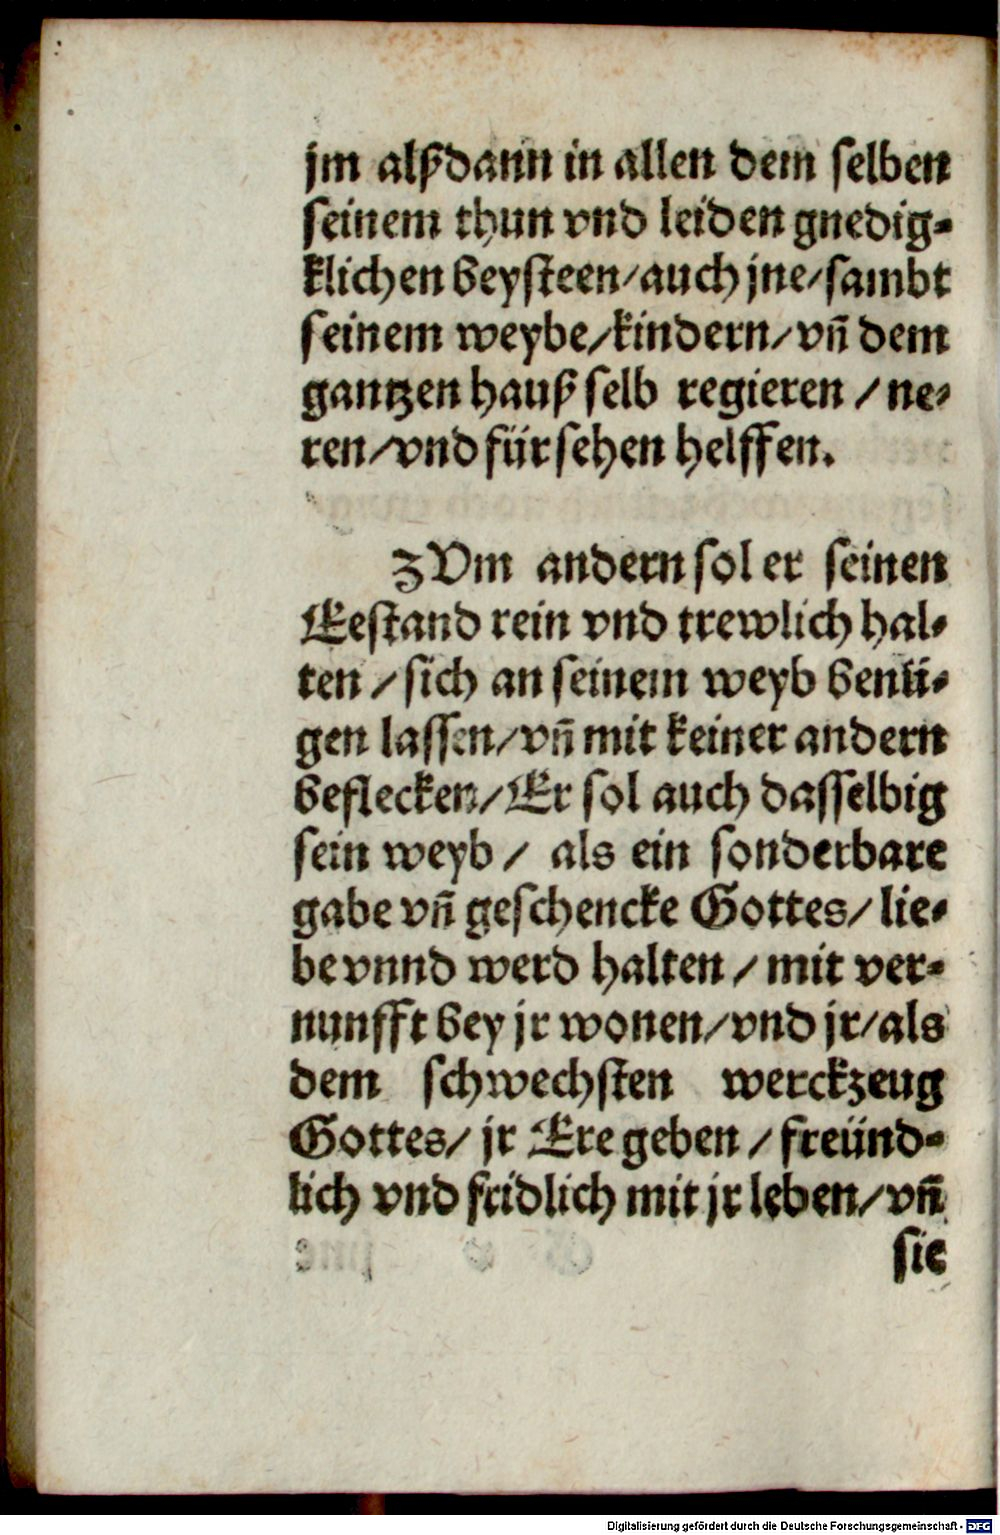 jm alßdann in allen dem selben
seinem thun vnd leiden gnedig-
klichen beysteen/auch jne/sambt
seinem weybe/kindern/vñ dem
gantzen hauß selb regieren / ne-
ren/vnd fürsehen helffen.
zVm andern sol er seinen
Eestand rein vnd trewlich hal-
ten / sich an seinem weyb benü-
gen lassen/vñ mit keiner andern
beflecken/Er sol auch dasselbig
sein weyb / als ein sonderbare
gabe vñ geschencke Gottes/ lie-
be vnnd werd halten / mit ver-
nunfft bey jr wonen/vnd jr/als
dem schwechsten werckzeug
Gottes/ jr Ere geben / freünd-
lich vnd fridlich mit jr leben/vñ
sie
Digitalisierung gefördert durch die Deutsche Forschungsgemeinschaft - DFG